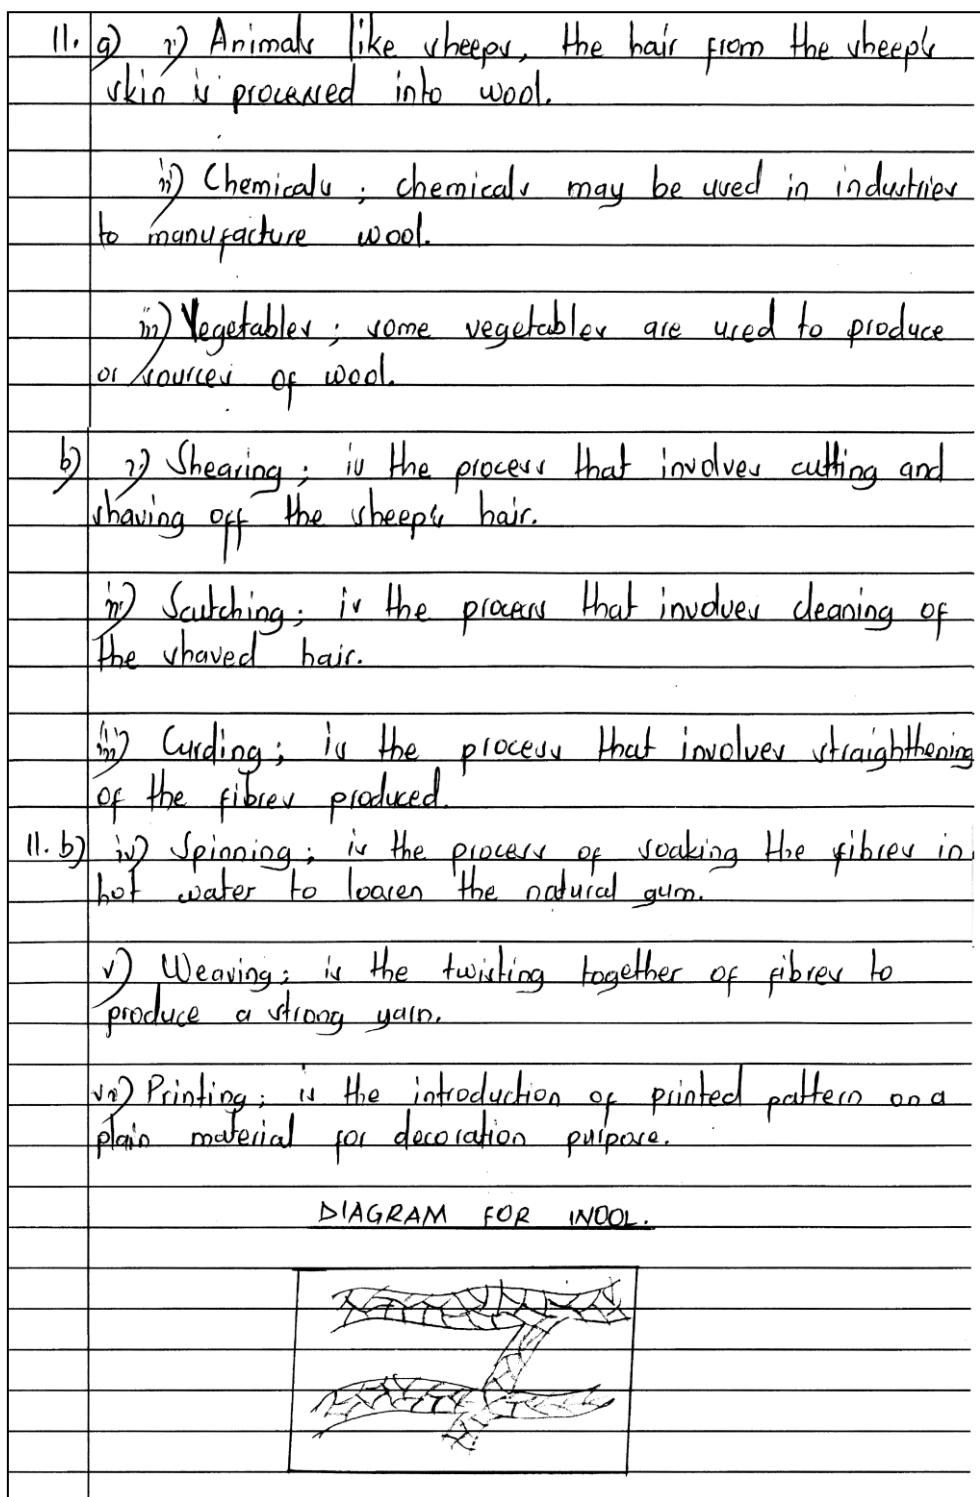 11. a) i) Animals like sheeps, the hair from the sheep's
skin is processed into wool.
ii) Chemicals ; chemicals may be used in industries
to manufacture wool.
iii) Vegetables ; some vegetables are used to produce
or sources of wool.
b) i) Shearing ; is the process that involves cutting and
shaving off the sheep's hair.
ii) Scutching ; is the process that involves cleaning of
the shaved hair.
iii) Curding ; is the process that involves straighthening
of the fibres produced.
11. b) iv) Spinning ; is the process of soaking the fibres in
hot water to loosen the natural gum.
v) Weaving ; is the twisting together of fibres to
produce a strong yarn.
vi) Printing ; is the introduction of printed pattern on a
plain material for decoration purpose.
DIAGRAM FOR WOOL.